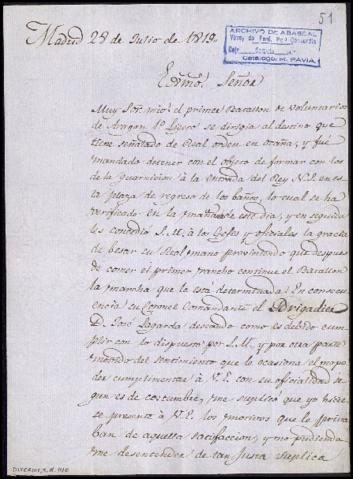 51
Madrid 28 de Julio de 1819.
ARCHIVO DE ABASCAL
Virrey del Perú, M. de la Concordia
Catálogo: M. PAVIA.
Exmo. Señor
Muy Sor. mio: el primer Batallon de Voluntarios
de Aragon 1º Ligero se dirigia al destino que
tiene señalado de Real orden en Ocaña; y fue
mandado detener con el objeto de formar con los
de la Guarnicion à la entrada del Rey N.S. en es
ta plaza de regreso de los baños, lo cual se ha
verificado en la mañana de este dia; y en seguida
les concedio S.M. à los Gefes y oficiales la gracia
de besar su Real mano previniendo que despues
de comer el primer rancho continue el Batallon
la marcha que le está determinada: En consecu
encia su Coronel Comandante el Brigadier
D. José Lagarda deseando como es debido cum
plir con lo dispuesto por S.M. y por otra parte
movido del sentimiento que le ocasiona el no po
der cumplimentar à V.E. con su oficialidad se
gun es de costumbre, me suplica que yo
presente à V.E. los motivos que le priva
ban de aquella satisfaccion; y no pudiendo
me desentender de tan justa suplica